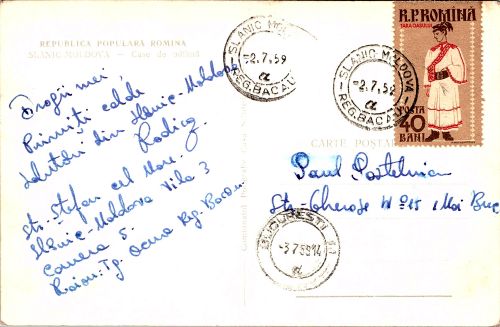 REPUBLICA POPULARA ROMINA
SLANIC-MOLDOVA — Case de odihnă
Dragii mei,
Primiți calde
salutări din Slănic-Moldova
Rodica
Str. Ștefan cel Mare
Slănic-Moldova Vila 3
Camera 5.
Raion: Tg. Ocna Rg. Bacău
SLANIC MOLDOVA
-2.7.59
REG. BACAU
SLANIC MOLDOVA
-2.7.59
REG. BACAU
R.P. ROMINA
POSTA
40
BANI
CARTE POSTALA
Paul Postelnicu
Str. 15 1 Mai Buc
BUCURESTI
-3.7.59 14